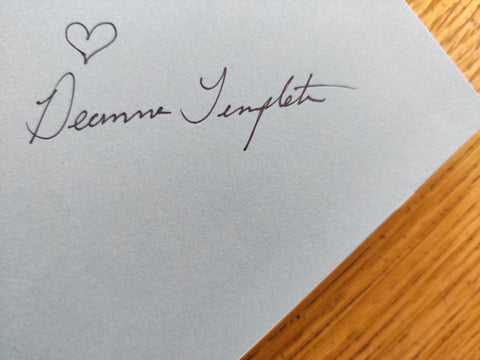 Deanna Templeton